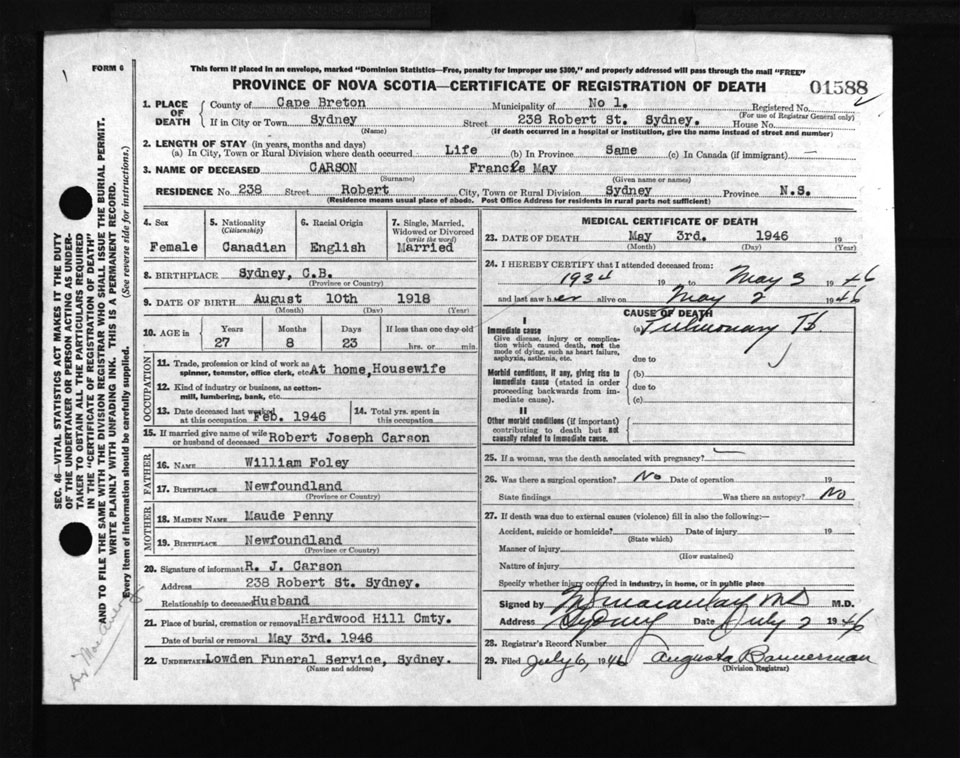 FORM 6
This form if placed in an envelope, marked "Dominion Statistics—Free, penalty for improper use $300," and properly addressed will pass through the mail "FREE"
PROVINCE OF NOVA SCOTIA—CERTIFICATE OF REGISTRATION OF DEATH 01588
1. PLACE OF DEATH
County of Cape Breton Municipality of No 1. Registered No.
(For use of Registrar General only)
If in City or Town Sydney Street 238 Robert St. Sydney. House No.
(Name) (If death occurred in a hospital or institution, give the name instead of street and number)
2. LENGTH OF STAY (in years, months and days)
(a) In City, Town or Rural Division where death occurred Life (b) In Province Same (c) In Canada (if immigrant) —
3. NAME OF DECEASED CARSON Francis May
(Surname) (Given name or names)
RESIDENCE No. 238 Street Robert City, Town or Rural Division Sydney Province N.S.
(Residence means usual place of abode. Post Office Address for residents in rural parts not sufficient)
4. Sex
Female
5. Nationality
(Citizenship)
Canadian
6. Racial Origin
English
7. Single, Married, Widowed or Divorced
(write the word)
Married
8. BIRTHPLACE Sydney, C.B.
(Province or Country)
9. DATE OF BIRTH August 10th 1918
(Month) (Day) (Year)
10. AGE in Years Months Days If less than one day old
27 8 23 hrs. or min.
OCCUPATION
11. Trade, profession or kind of work as spinner, teamster, office clerk, etc. At home, Housewife
12. Kind of industry or business, as cotton-mill, lumbering, bank, etc.
13. Date deceased last worked at this occupation Feb. 1946
14. Total yrs. spent in this occupation
15. If married give name of wife or husband of deceased Robert Joseph Carson
FATHER
16. NAME William Foley
17. BIRTHPLACE Newfoundland
(Province or Country)
MOTHER
18. MAIDEN NAME Maude Penny
19. BIRTHPLACE Newfoundland
(Province or Country)
20. Signature of informant R. J. Carson
Address 238 Robert St. Sydney.
Relationship to deceased Husband
21. Place of burial, cremation or removal Hardwood Hill Cmty.
Date of burial or removal May 3rd. 1946
22. UNDERTAKER Lowden Funeral Service, Sydney.
(Name and address)
MEDICAL CERTIFICATE OF DEATH
23. DATE OF DEATH May 3rd. 1946 19
(Month) (Day) (Year)
24. I HEREBY CERTIFY that I attended deceased from:
1934 19 to May 3 1946
and last saw her alive on May 2 1946
CAUSE OF DEATH
I
Immediate cause
Give disease, injury or complication which caused death, not the mode of dying, such as heart failure, asphyxia, asthenia, etc.
(a) Pulmonary Tb
due to
Morbid conditions, if any, giving rise to immediate cause (stated in order proceeding backwards from immediate cause).
(b)
due to
(c)
II
Other morbid conditions (if important) contributing to death but not causally related to immediate cause.
25. If a woman, was the death associated with pregnancy? —
26. Was there a surgical operation? No Date of operation 19
State findings Was there an autopsy? No
27. If death was due to external causes (violence) fill in also the following:—
Accident, suicide or homicide? Date of injury 19
(State which)
Manner of injury
(How sustained)
Nature of injury
Specify whether injury occurred in industry, in home, or in public place
Signed by Macaulay MD M.D.
Address Sydney Date July 2 1946
28. Registrar's Record Number
29. Filed July 6, 1946 Augusta Bannerman
(Division Registrar)
SEC. 46—VITAL STATISTICS ACT MAKES IT THE DUTY
OF THE UNDERTAKER OR PERSON ACTING AS UNDER-
TAKER TO OBTAIN ALL THE PARTICULARS REQUIRED
IN THE "CERTIFICATE OF REGISTRATION OF DEATH"
AND TO FILE THE SAME WITH THE DIVISION REGISTRAR WHO SHALL ISSUE THE BURIAL PERMIT.
WRITE PLAINLY WITH UNFADING INK. THIS IS A PERMANENT RECORD.
Every item of information should be carefully supplied. (See reverse side for instructions.)